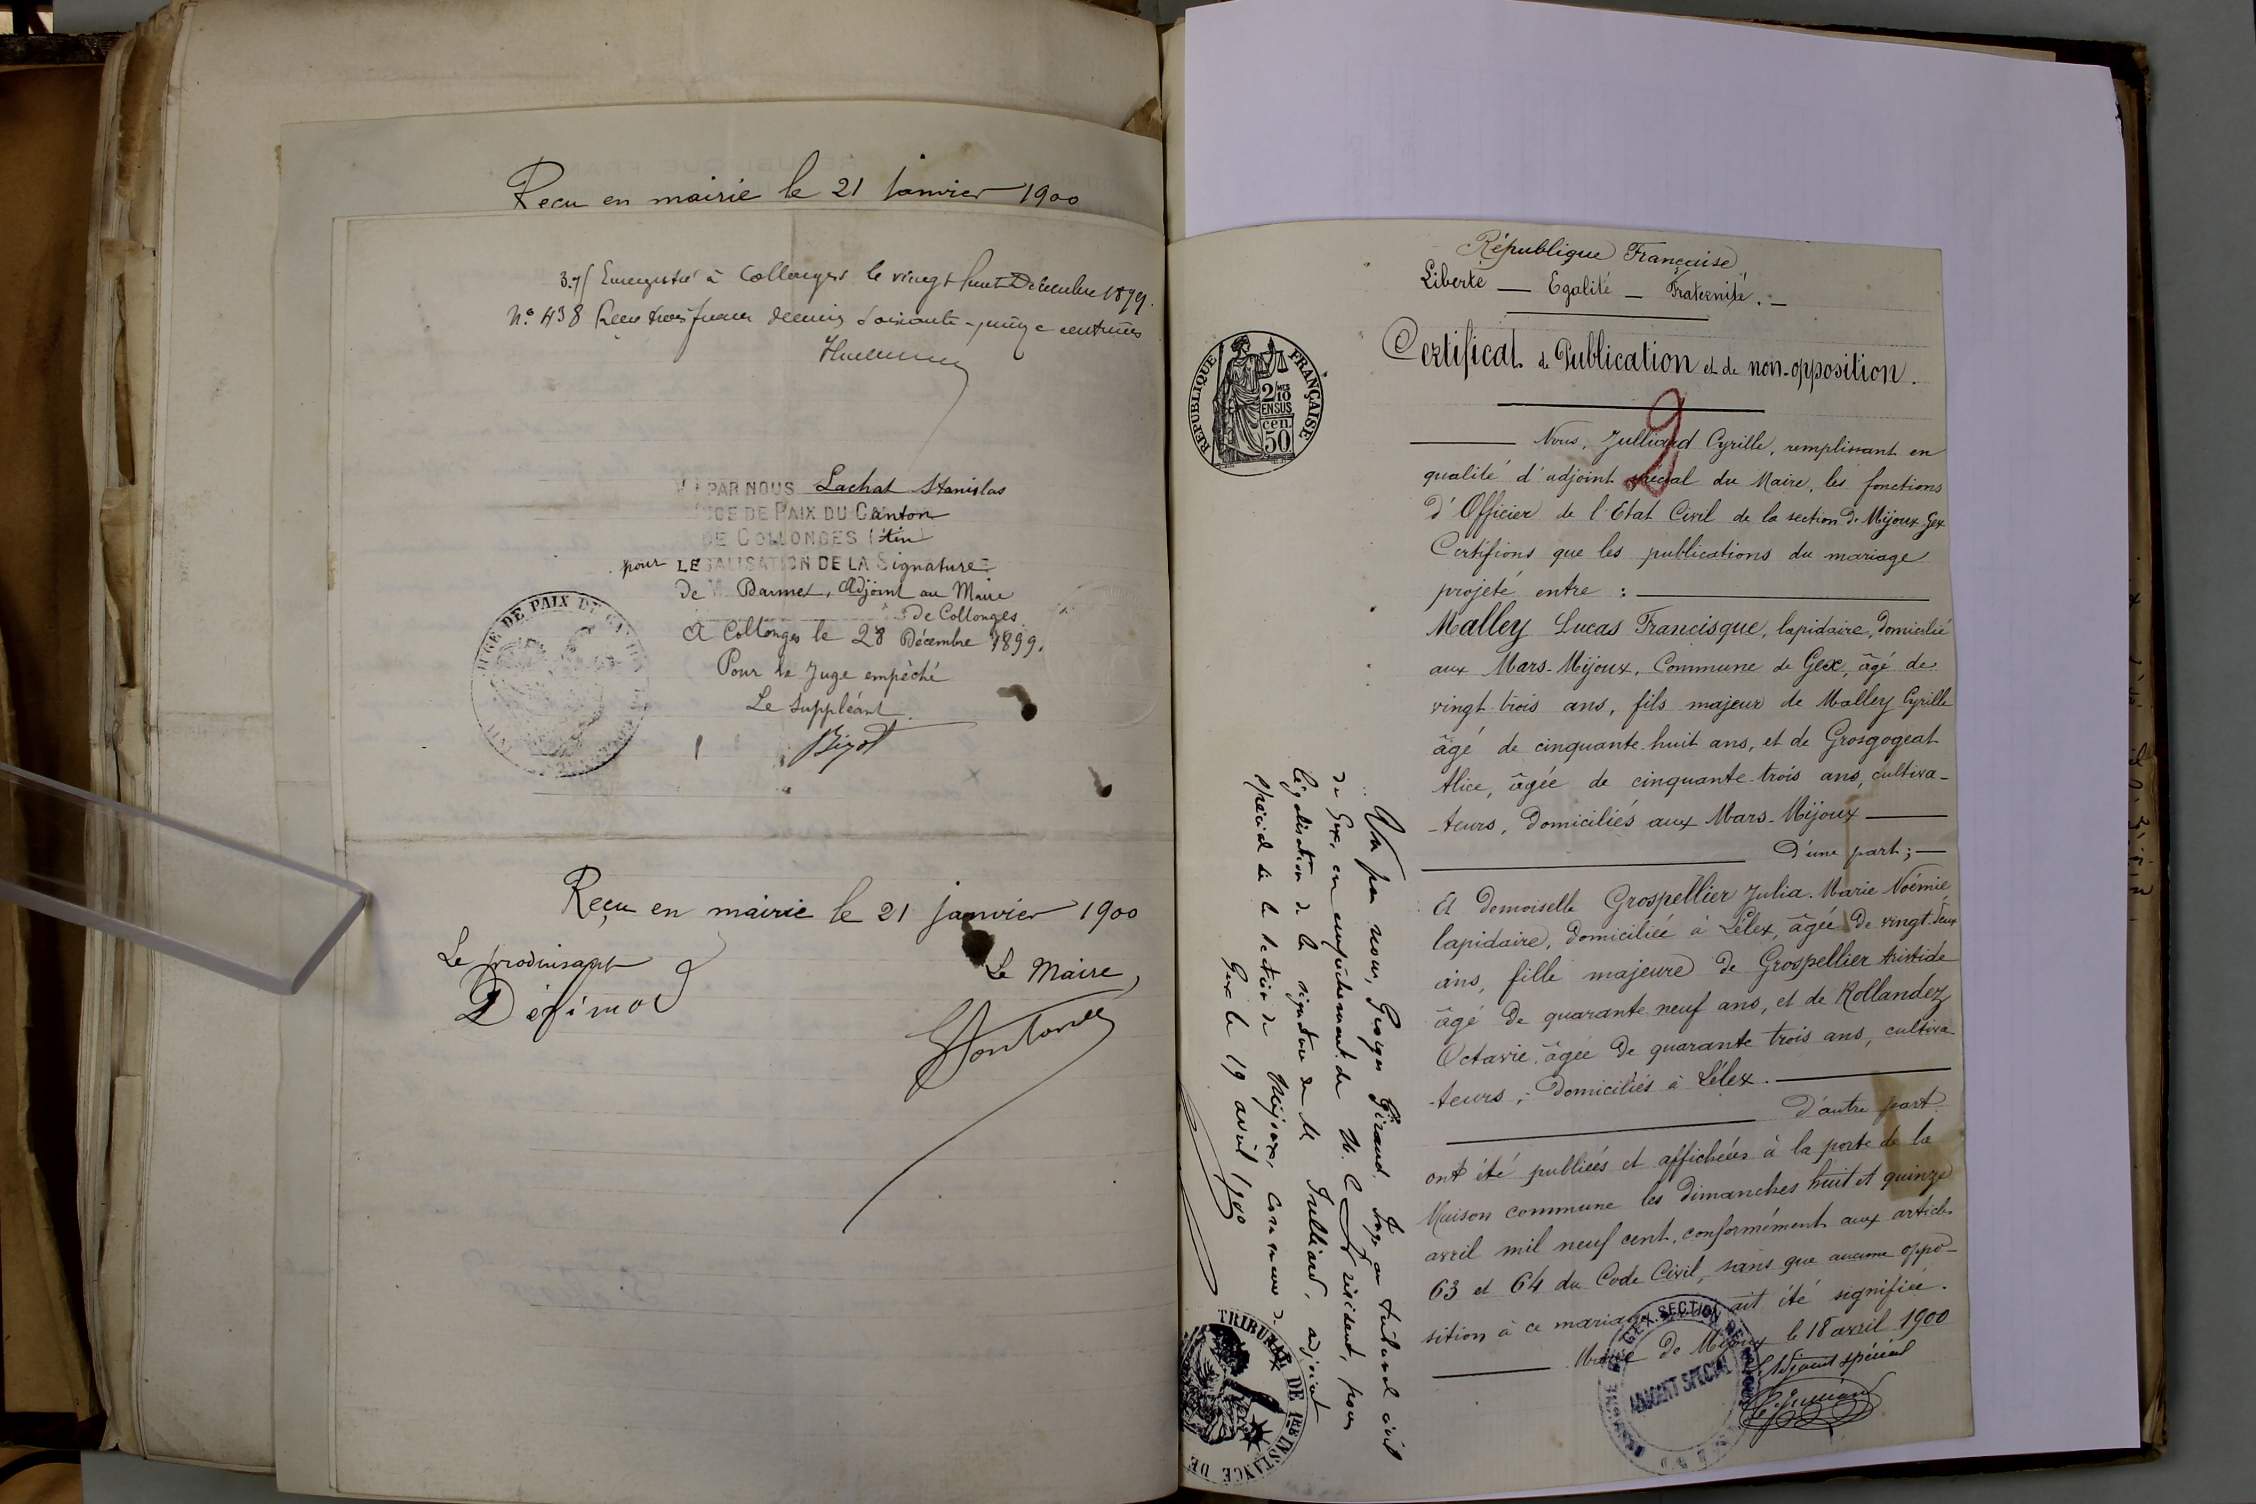 Reçu en mairie le 21 Janvier 1900
37/ Enregistré à Collonges le vingt huit Décembre 1899.
N.º 438 Reçu trois francs decimes soixante-quinze centimes
PAR NOUS Lachat Stanislas
JUGE DE PAIX DU Canton
DE COLLONGES (Ain)
pour LEGALISATION DE LA Signature
de M. Darmet, Adjoint au Maire
de Collonges.
A Collonges le 28 Décembre 1899.
Pour le Juge empêché
Le Suppléant
JUGE DE PAIX DU CANTON
Reçu en mairie le 21 janvier 1900
Le produisant
Le Maire,
République Française
Liberté — Egalité — Fraternité. —
Certificat de Publication et de non-opposition.
REPUBLIQUE FRANÇAISE
2/10
EN SUS
50 cen.
2
Nous, Julliard Cyrille, remplissant en
qualité d'adjoint spécial du Maire, les fonctions
d'Officier de l'Etat Civil de la section de Mijoux-Gex
Certifions que les publications du mariage
projeté entre :
Malley Lucas Francisque, lapidaire, domicilié
aux Mars-Mijoux, Commune de Gex, âgé de
vingt trois ans, fils majeur de Malley Cyrille
âgé de cinquante-huit ans, et de Grosgogeat
Alice, âgée de cinquante-trois ans, cultiva-
-teurs, domiciliés aux Mars-Mijoux
D'une part; —
Et demoiselle Grospellier Julia-Marie Noémie
lapidaire, domiciliée à Lélex, âgée de vingt-deux
ans, fille majeure de Grospellier Aristide
âgé de quarante neuf ans, et de Rollandez
Octavie, âgée de quarante trois ans, cultiva
-teurs, domiciliés à Lélex.
D'autre part.
ont été publiées et affichées à la porte de la
Maison commune les dimanches huit et quinze
avril mil neuf cent, conformément aux articles
63 et 64 du Code Civil, sans que aucune oppo-
sition à ce mariage ait été signifiée.
Mairie de Mijoux le 18 avril 1900
L'Adjoint spécial
C. Julliard
GEX SECTION DE
ADJOINT SPECIAL
Vu par nous, Georges Giraud, Juge au tribunal civil
de Gex, en empêchement de M. le Président, pour
légalisation de la signature de M. Julliard, adjoint
spécial de la section de Mijoux, commune de
Gex le 19 avril 1900
TRIBUNAL DE 1ERE INSTANCE DE